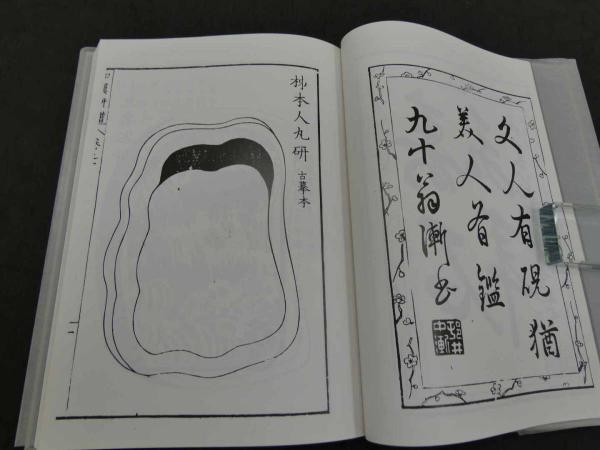 文人有硯猶
美人有鑑
九十翁漸書
邨井
中漸
柿本人丸研 古摹本